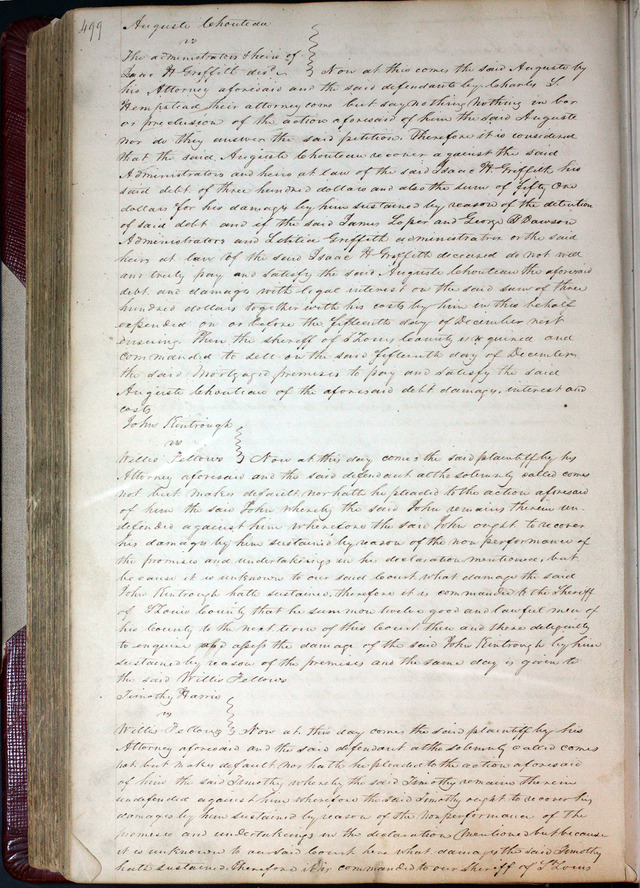 499
Auguste Chouteau
vs
The administrators & heirs of
Isaac H Griffith decd } Now at this comes the said Auguste by
his Attorney aforesaid and the said defendants by Charles S.
Hempstead their attorney come but say nothing nothing in bar
or preclusion of the action aforesaid of him the said Auguste
nor do they answer the said petition. Therefore it is considered
that the said Auguste Chouteau recover against the said
Administrators and heirs at law of the said Isaac H. Griffith his
said debt of three hundred dollars and also the sum of fifty one
dollars for his damages by him sustained by reason of the detention
of said debt and if the said James Loper and George B Dawson
Administrators and Letitia Griffith administratrix or the said
heirs at law of the said Isaac H Griffith deceased do not well
and truly pay and satisfy the said Auguste Chouteau the aforesaid
debt and damages with legal interest on the said sum of three
hundred dollars together with his costs by him in this behalf
expended on or before the fifteenth day of December next
ensuing. Then the sheriff of St Louis County is required and
commanded to sell on the said fifteenth day of December
the said mortgaged premises to pay and satisfy the said
Auguste Chouteau of the aforesaid debt damages, interest and
costs
John Kintrough
vs
Willis Fellows } Now at this day comes the said plaintiff by his
Attorney aforesaid and the said defendant altho solemnly called comes
not but makes default nor hath he pleaded to the action aforesaid
of him the said John whereby the said John remains therein un-
defended against him wherefore the said John ought to recover
his damages by him sustained by reason of the non performance of
the promises and undertakings in the declaration mentioned, but
because it is unknown to our said Court what damage the said
John Kintrough hath sustained. therefore it is commanded to the Sheriff
of St Louis County that he summon twelve good and lawful men of
his County to the next term of this Court then and there diligently
to enquire and assess the damage of the said John Kintrough by him
sustained by reason of the premises and the same day is given to
the said Willis Fellows
Timothy Harris
vs
Willis Fellows } Now at this day comes the said plaintiff by his
Attorney aforesaid and the said defendant altho solemnly called comes
not but makes default nor hath he pleaded to the action aforesaid
of him the said Timothy whereby the said Timothy remains therein
undefended against him wherefore the said Timothy ought to recover his
damages by him sustained by reason of the nonperformance of the
promises and undertakings in the declaration mentioned but because
it is unknown to our said Court here what damages the said Timothy
hath sustained. Therefore it is commanded to our Sheriff of St Louis